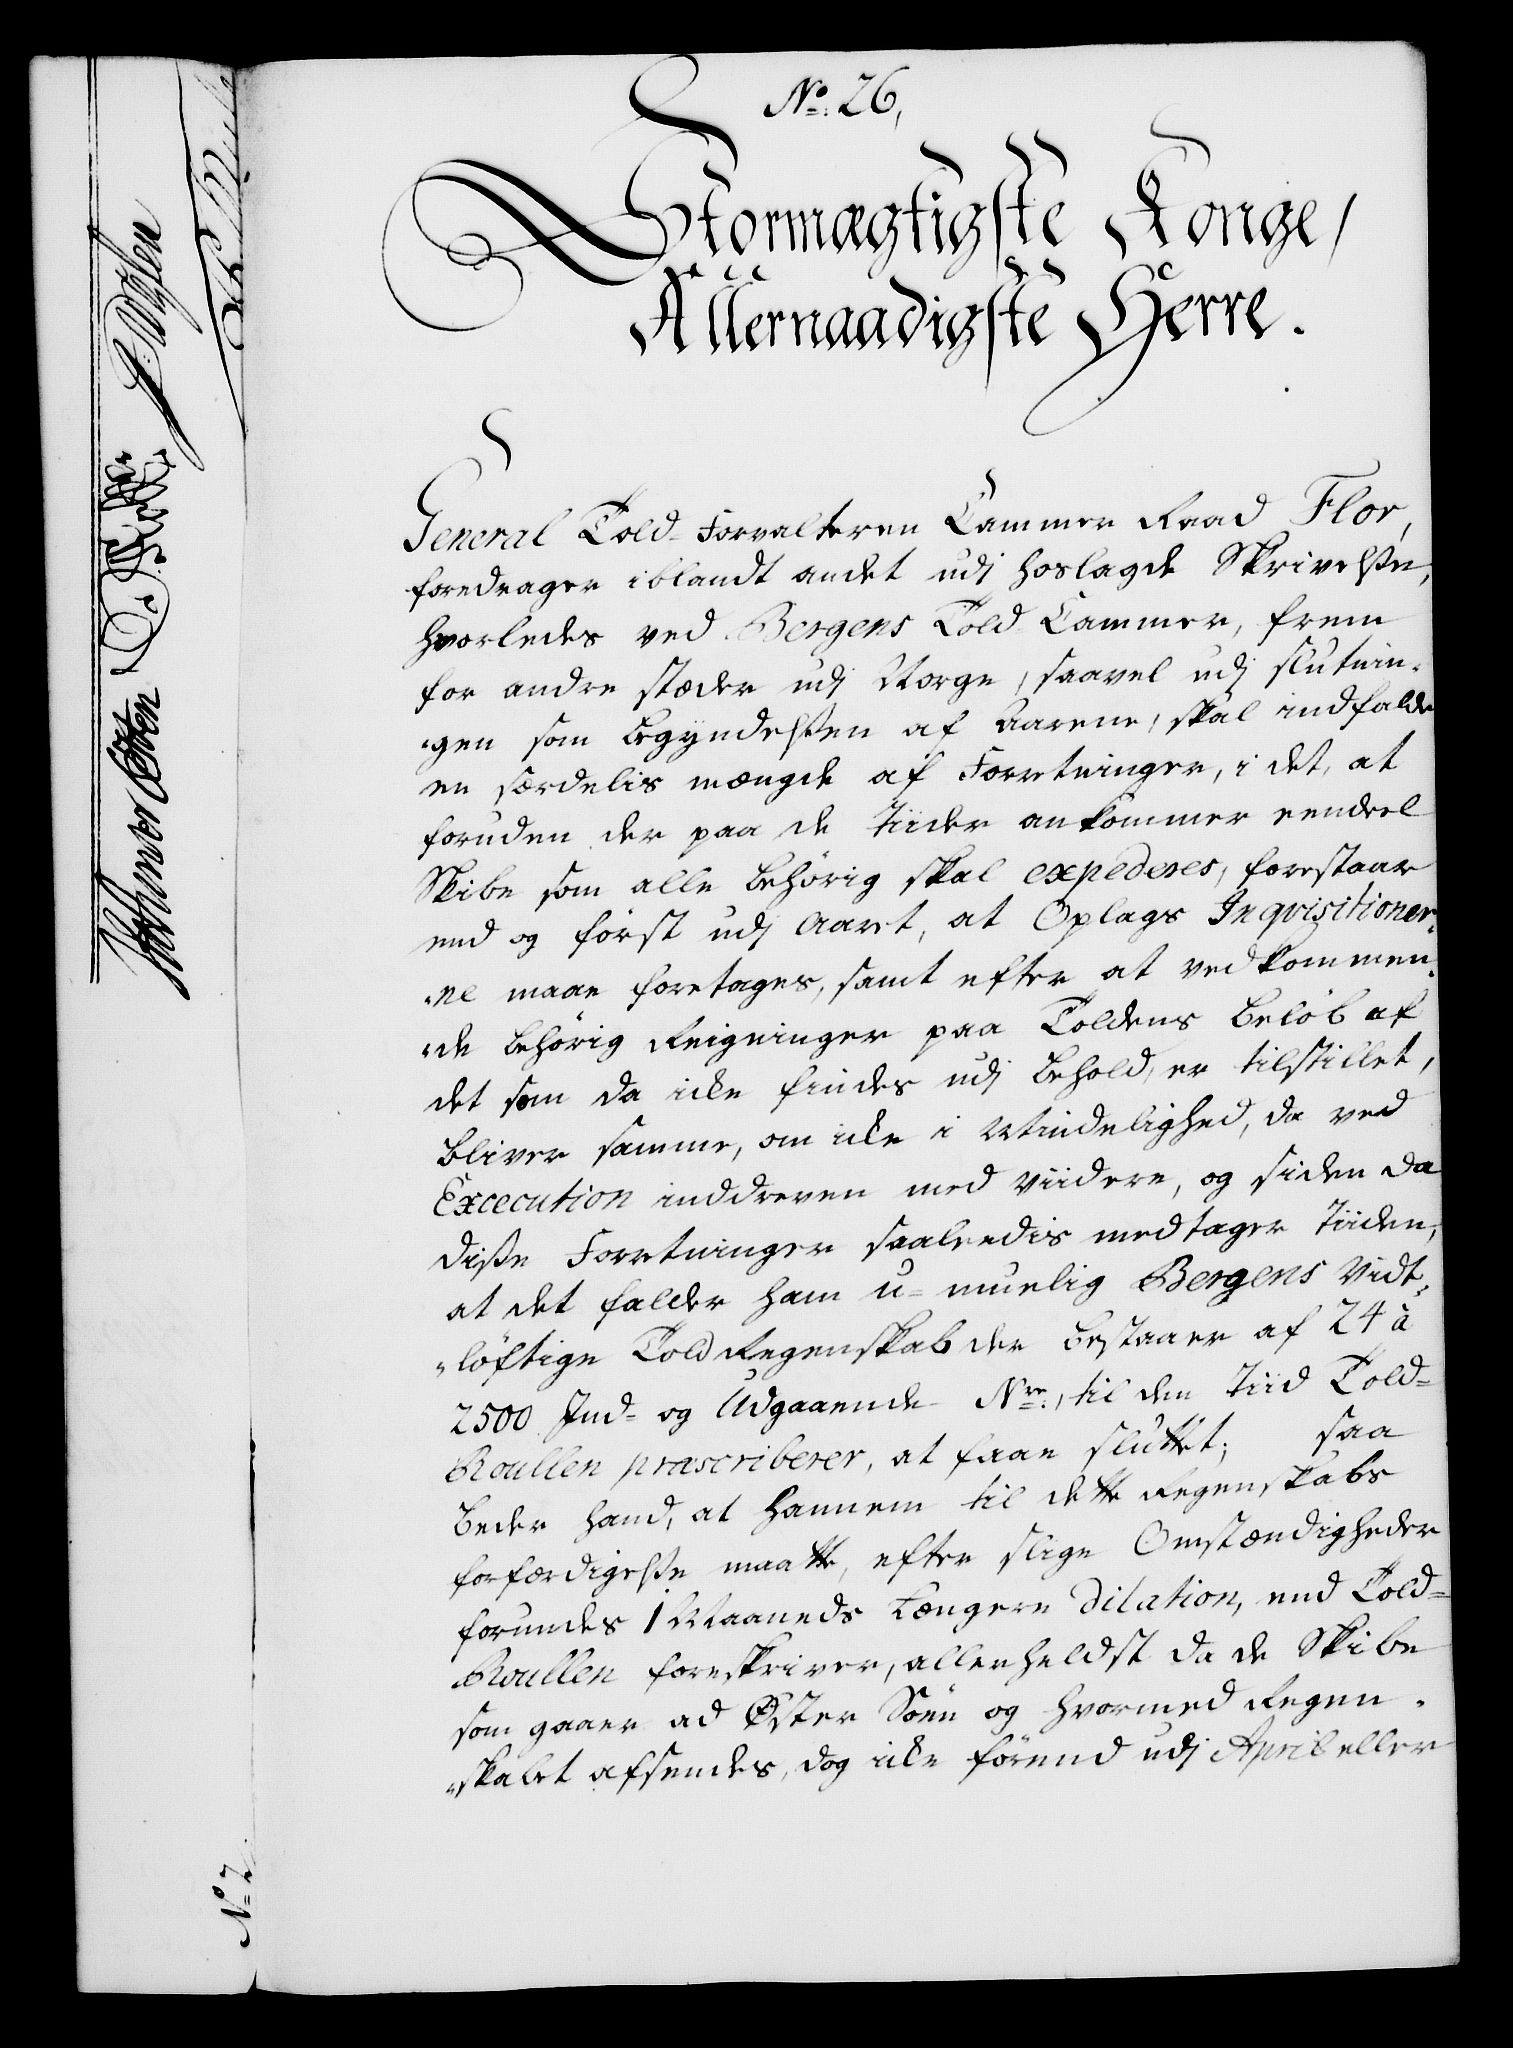 No. 26,
Stormægtigste Konge,
Allernaadigste Herre.
General Told-Forvalteren Cammer Raad Flor,
foredrager iblandt andet udj hoslagde Skrivelsse,
hvorledes ved Bergens Told Cammer, frem
for andre stæder udj Norge, saavel udj slutnin-
gen som begyndelssen af Aarene, skal indfalde
en særdelis mængde af Forretninger, i det, at
foruden der paa de Tiider ankommer eendeel
Skibe som alle behörig skal expederes, forestaar
end og först udj Aaret, at Oplags Inqvisitioner-
ne maae foretages, samt efter at vedkommen-
de behörig Reigninger paa Toldens Belöb af
det som da icke findes udj behold, er tilstillet,
bliver samme, om icke i Mindelighed, da ved
Excecution inddreven med viidere, og siden da
disse Forretninger saaleedis medtager Tiiden,
at det falder ham u-muelig Bergens Vidt-
löftige Told Regenskab der bestaaer af 24 à
2500 Ind- og Udgaaende Nre., til den Tiid Told-
Roullen præscriberer, at faae sluttet; saa
beder hand, at hannem til dette Regenskabs
forfærdigelsse maatte, efter slige Omstændigheder
forundes 1 Maaneds Længere Dilation, end Told-
Roullen foreskriver, allerheldst da de Skibe
som gaaer ad Øster Söen og hvormed Regen-
skabet afsendes, dog icke förend udj April eller